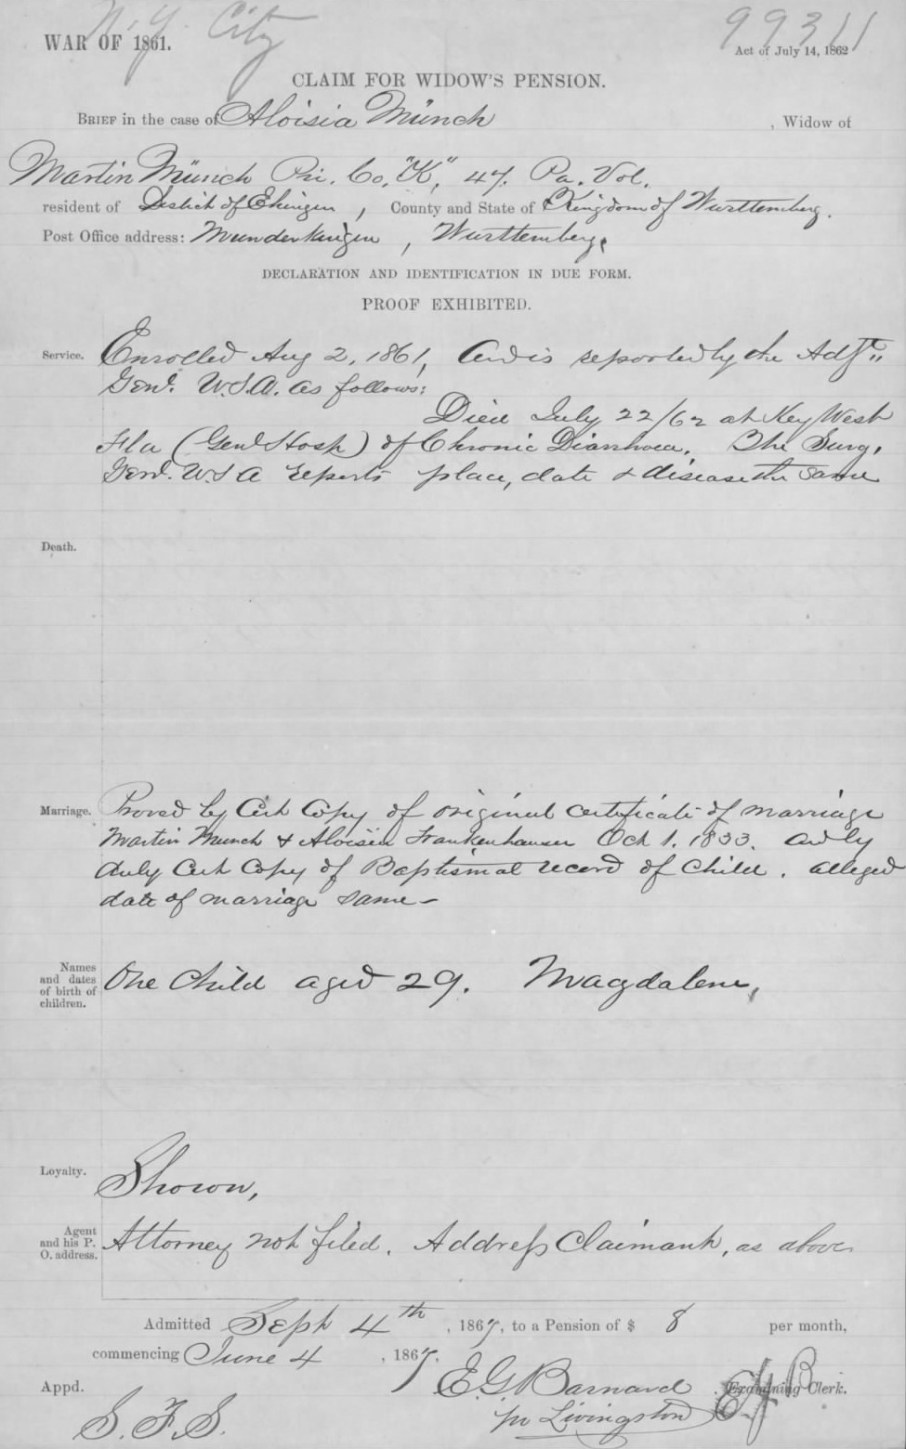 N. Y. City
99311
WAR OF 1861.
Act of July 14, 1862
CLAIM FOR WIDOW'S PENSION.
BRIEF in the case of Aloisia Münch , Widow of
Martin Münch Pri. Co. "K", 47. Pa. Vol.
resident of District of Ehingen , County and State of Kingdom of Wurttemberg.
Post Office address: Munderkingen , Wurttemberg.
DECLARATION AND IDENTIFICATION IN DUE FORM.
PROOF EXHIBITED.
Service. Enrolled Aug 2, 1861, and is reported by the Adjt.
Genl. U.S.A. as follows:
Died July 22/62 at Key West
Fla (Genl Hosp) of Chronic Diarrhoea. The Surg.
Genl. U.S A reports place, date & disease the same
Death.
Marriage. Proved by Cert Copy of original certificate of marriage
Martin Munch & Aloisia Frankenhauser Oct 1. 1833. and by
duly Cert Copy of Baptismal record of Child. alleged
date of marriage same
Names and dates of birth of children. One Child aged 29. Magdalene,
Loyalty. Shown,
Agent and his P. O. address. Attorney not filed. Address Claimant, as above
Admitted Sept 4th , 1867, to a Pension of $ 8 per month,
commencing June 4 , 1867.
E. G Barnard Examining Clerk.
Appd. pr Livingston
S. F. S.